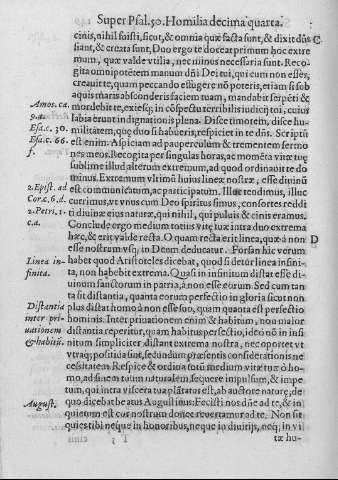 Super Psal. 50. Homilia decima quarta.
cinis, nihil fuisti, sicut, & omnia quæ facta sunt, & dixit dñs C
fiant, & creata sunt, Duo ergo te doceat primum hoc extre
mum, quæ valde vtilia, nec minus necessaria sunt. Reco-
gita omnipotētem manum dñi Dei tui, qui cum non esses,
creauit te, quam peccando effugere nō poteris, etiam si sub
aquis maris absconderis faciem tuam, mandabit serpēti &
Amos. ca. mordebit te, exiesq; in cōspectu terribilis iudicij toi, cuius
9.a. labia erunt indignationis plena. Disce timorem, disce hu-
Esa. c. 30. militatem, quę duo si habueris, respiciet in te dñs. Scriptū
Esa. c. 66. est enim. Aspiciam ad pauperculum & trementem sermo
f. nes meos. Recogita per singulas horas, ac momēta vitæ tuę
sublime illud alterum extremum, ad quod ordinauit te do
minus. Extremum vltimū huius lineæ nostræ, esse diuinū
2. Epist. ad est communicatum, ac participatum. Illuc tendimus, illuc
Cor. c. 6. d. currimus, vt vnus cum Deo spiritus simus, consortes reddi
2. Petri. 1. ti diuinæ eius naturæ, qui nihil, qui puluis & cinis eramus.
c.a. Conclude ergo medium totius vitę tuæ intra duo extrema
hæc, & erit valde recta. O quam recta erit linea, quæ à non D
esse nostrum vsq; in Deum deducatur. Forsan hic verum
Linea in- habet quod Aristoteles dicebat, quod si detur linea in fini-
finita. ta, non habebit extrema. Quasi in infinitum distat esse di-
uinum sanctorum in patria, à non esse eorum. Sed cum tan
ta sit distantia, quanta eorum perfectio in gloria sicut non
Distantia plus distat homo à non esse suo, quam quanta est perfectio
inter pri- hominis. Inter priuationem enim & habitum, non maior
uationem distantia reperitur, quam habitus perfectio, ideo nō in infi
& habitū. nitum simpliciter distant extrema nostra, nec oportet vt
vtraq; positiua sint, secundum præsentis considerationis ne
cessitatem. Respice & ordina totū medium vitæ tuæ ò ho-
mo, ad finem tuum naturalem, sequere impulsum, & impe
tum, qui intra viscera tua plātatus est, ab auctore naturę, de
August. quo dicebat beatus Augustinus: Fecisti nos dñe ad te, & in
quietum est cor nostrum donec reuertamur ad te. Non sit
quies tibi neque in honoribus, neque in diuitijs, neq; in vi
T 3 tæ hu-
cinis